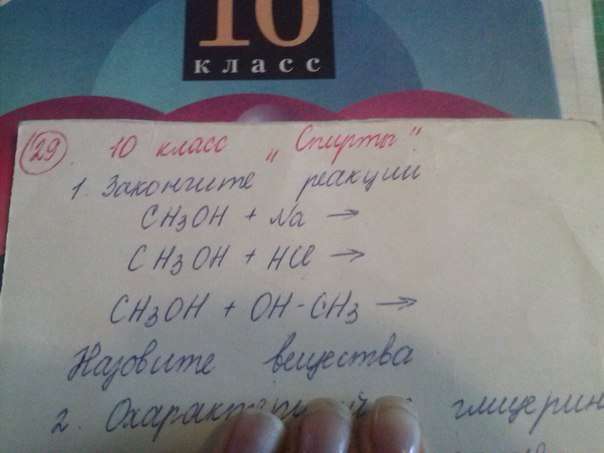 10
класс
29. 10 класс „Спирты"
1. Закончите реакции
CH3OH + Na →
CH3OH + HCl →
CH3OH + OH-CH3 →
Назовите вещества
2. глицерин